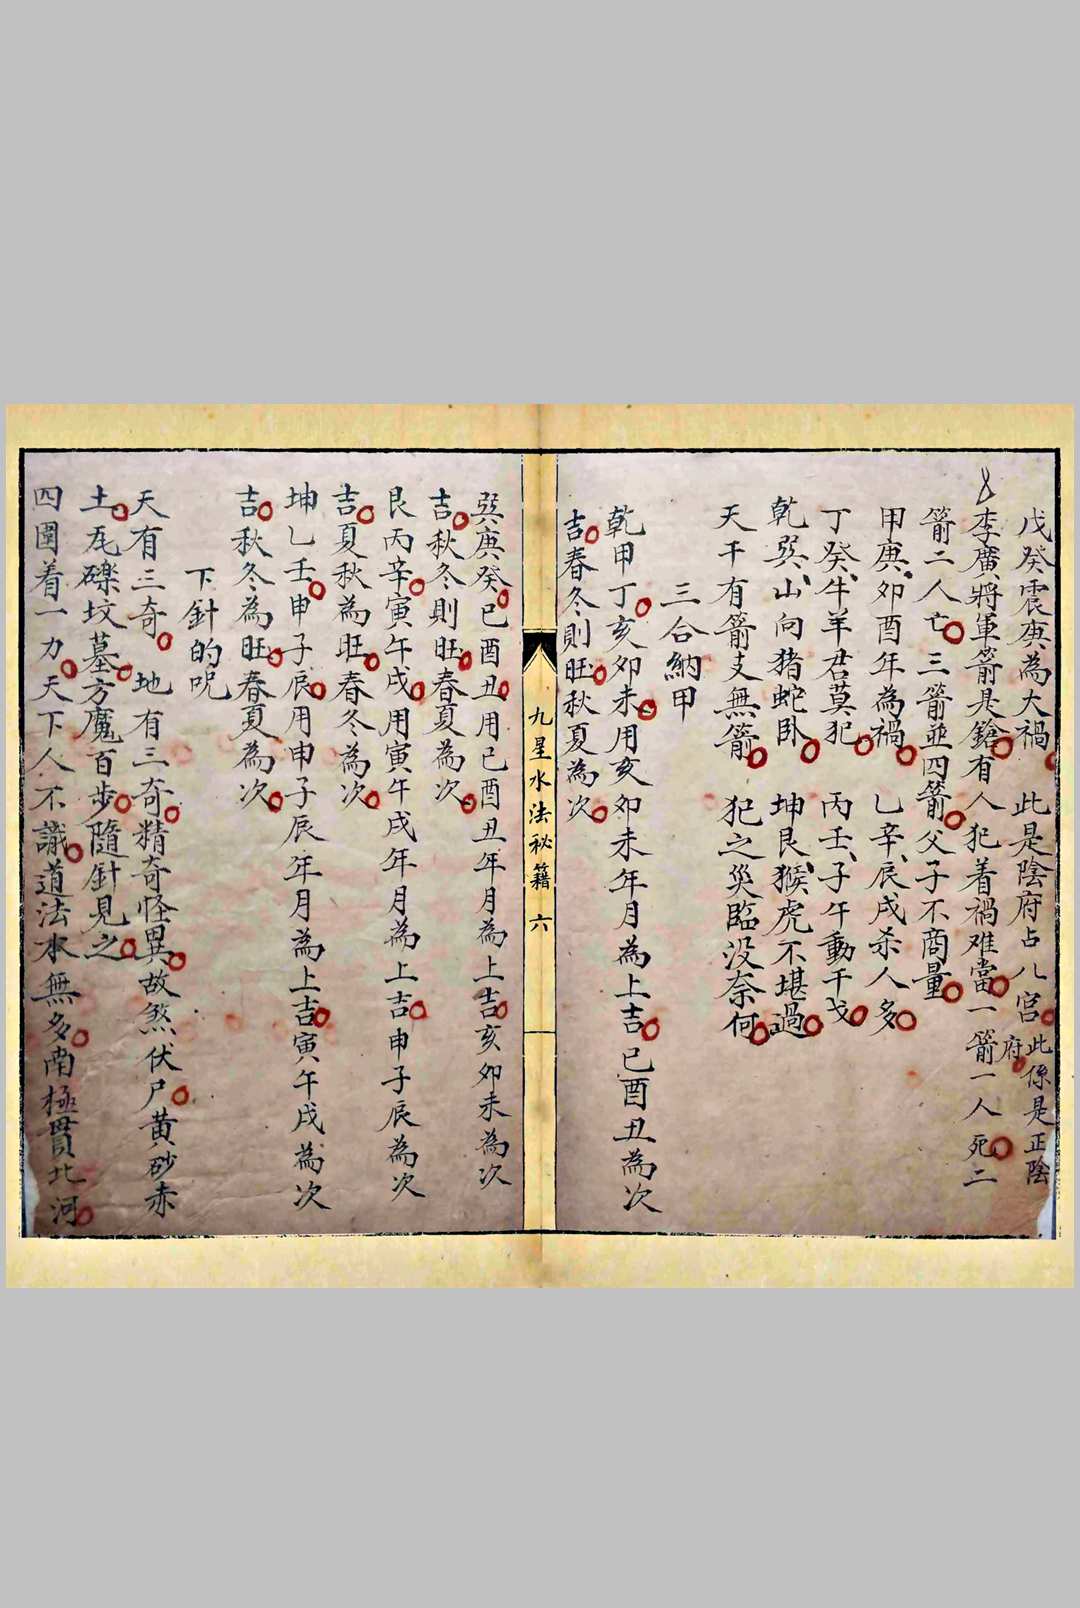 戊癸震庚為大禍 此是陰府占八宮 此係是正陰府
李廣將軍箭是鎗有人犯着禍难當一箭一人死二
箭二人亡三箭並四箭父子不商量
甲庚卯酉年為禍 乙辛辰戌杀人多
丁癸牛羊君莫犯 丙壬子午動干戈
乾巽山向猪蛇卧 坤艮猴虎不堪過
天干有箭支無箭 犯之災臨没奈何
三合納甲
乾甲丁亥卯未用亥卯未年月為上吉巳酉丑為次
吉春冬則旺秋夏為次
九星水法秘籍 六
巽庚癸巳酉丑用巳酉丑年月為上吉亥卯未為次
吉秋冬則旺春夏為次
艮丙辛寅午戌用寅午戌年月為上吉申子辰為次
吉夏秋為旺春冬為次
坤乙壬申子辰用申子辰年月為上吉寅午戌為次
吉秋冬為旺春夏為次
下針的呪
天有三奇地有三奇精奇怪異故煞伏尸黄砂赤
土瓦礫坟墓方魔百步隨針見之
四圍着一力天下人不識道法水無多南極貫北河